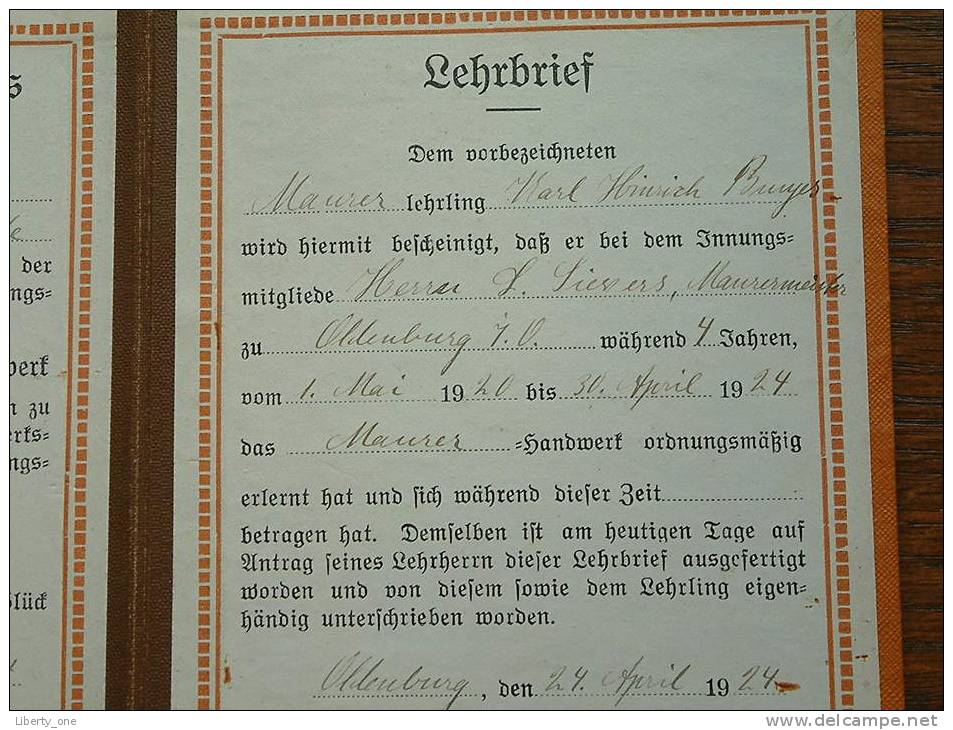 s
e
der
ngs=
werk
n zu
erks=
ngs=
Glück
Lehrbrief
Dem vorbezeichneten
Maurer lehrling Karl Hinrich
wird hiermit bescheinigt, daß er bei dem Innungs=
mitgliede Herrn L. Sievers, Maurermeister
zu Oldenburg i. O. während 4 Jahren,
vom 1. Mai 1920 bis 30. April 1924
das Maurer =Handwerk ordnungsmäßig
erlernt hat und sich während dieser Zeit
betragen hat. Demselben ist am heutigen Tage auf
Antrag seines Lehrherrn dieser Lehrbrief ausgefertigt
worden und von diesem sowie dem Lehrling eigen=
händig unterschrieben worden.
Oldenburg, den 24. April 1924
Liberty_one
www.delcampe.net